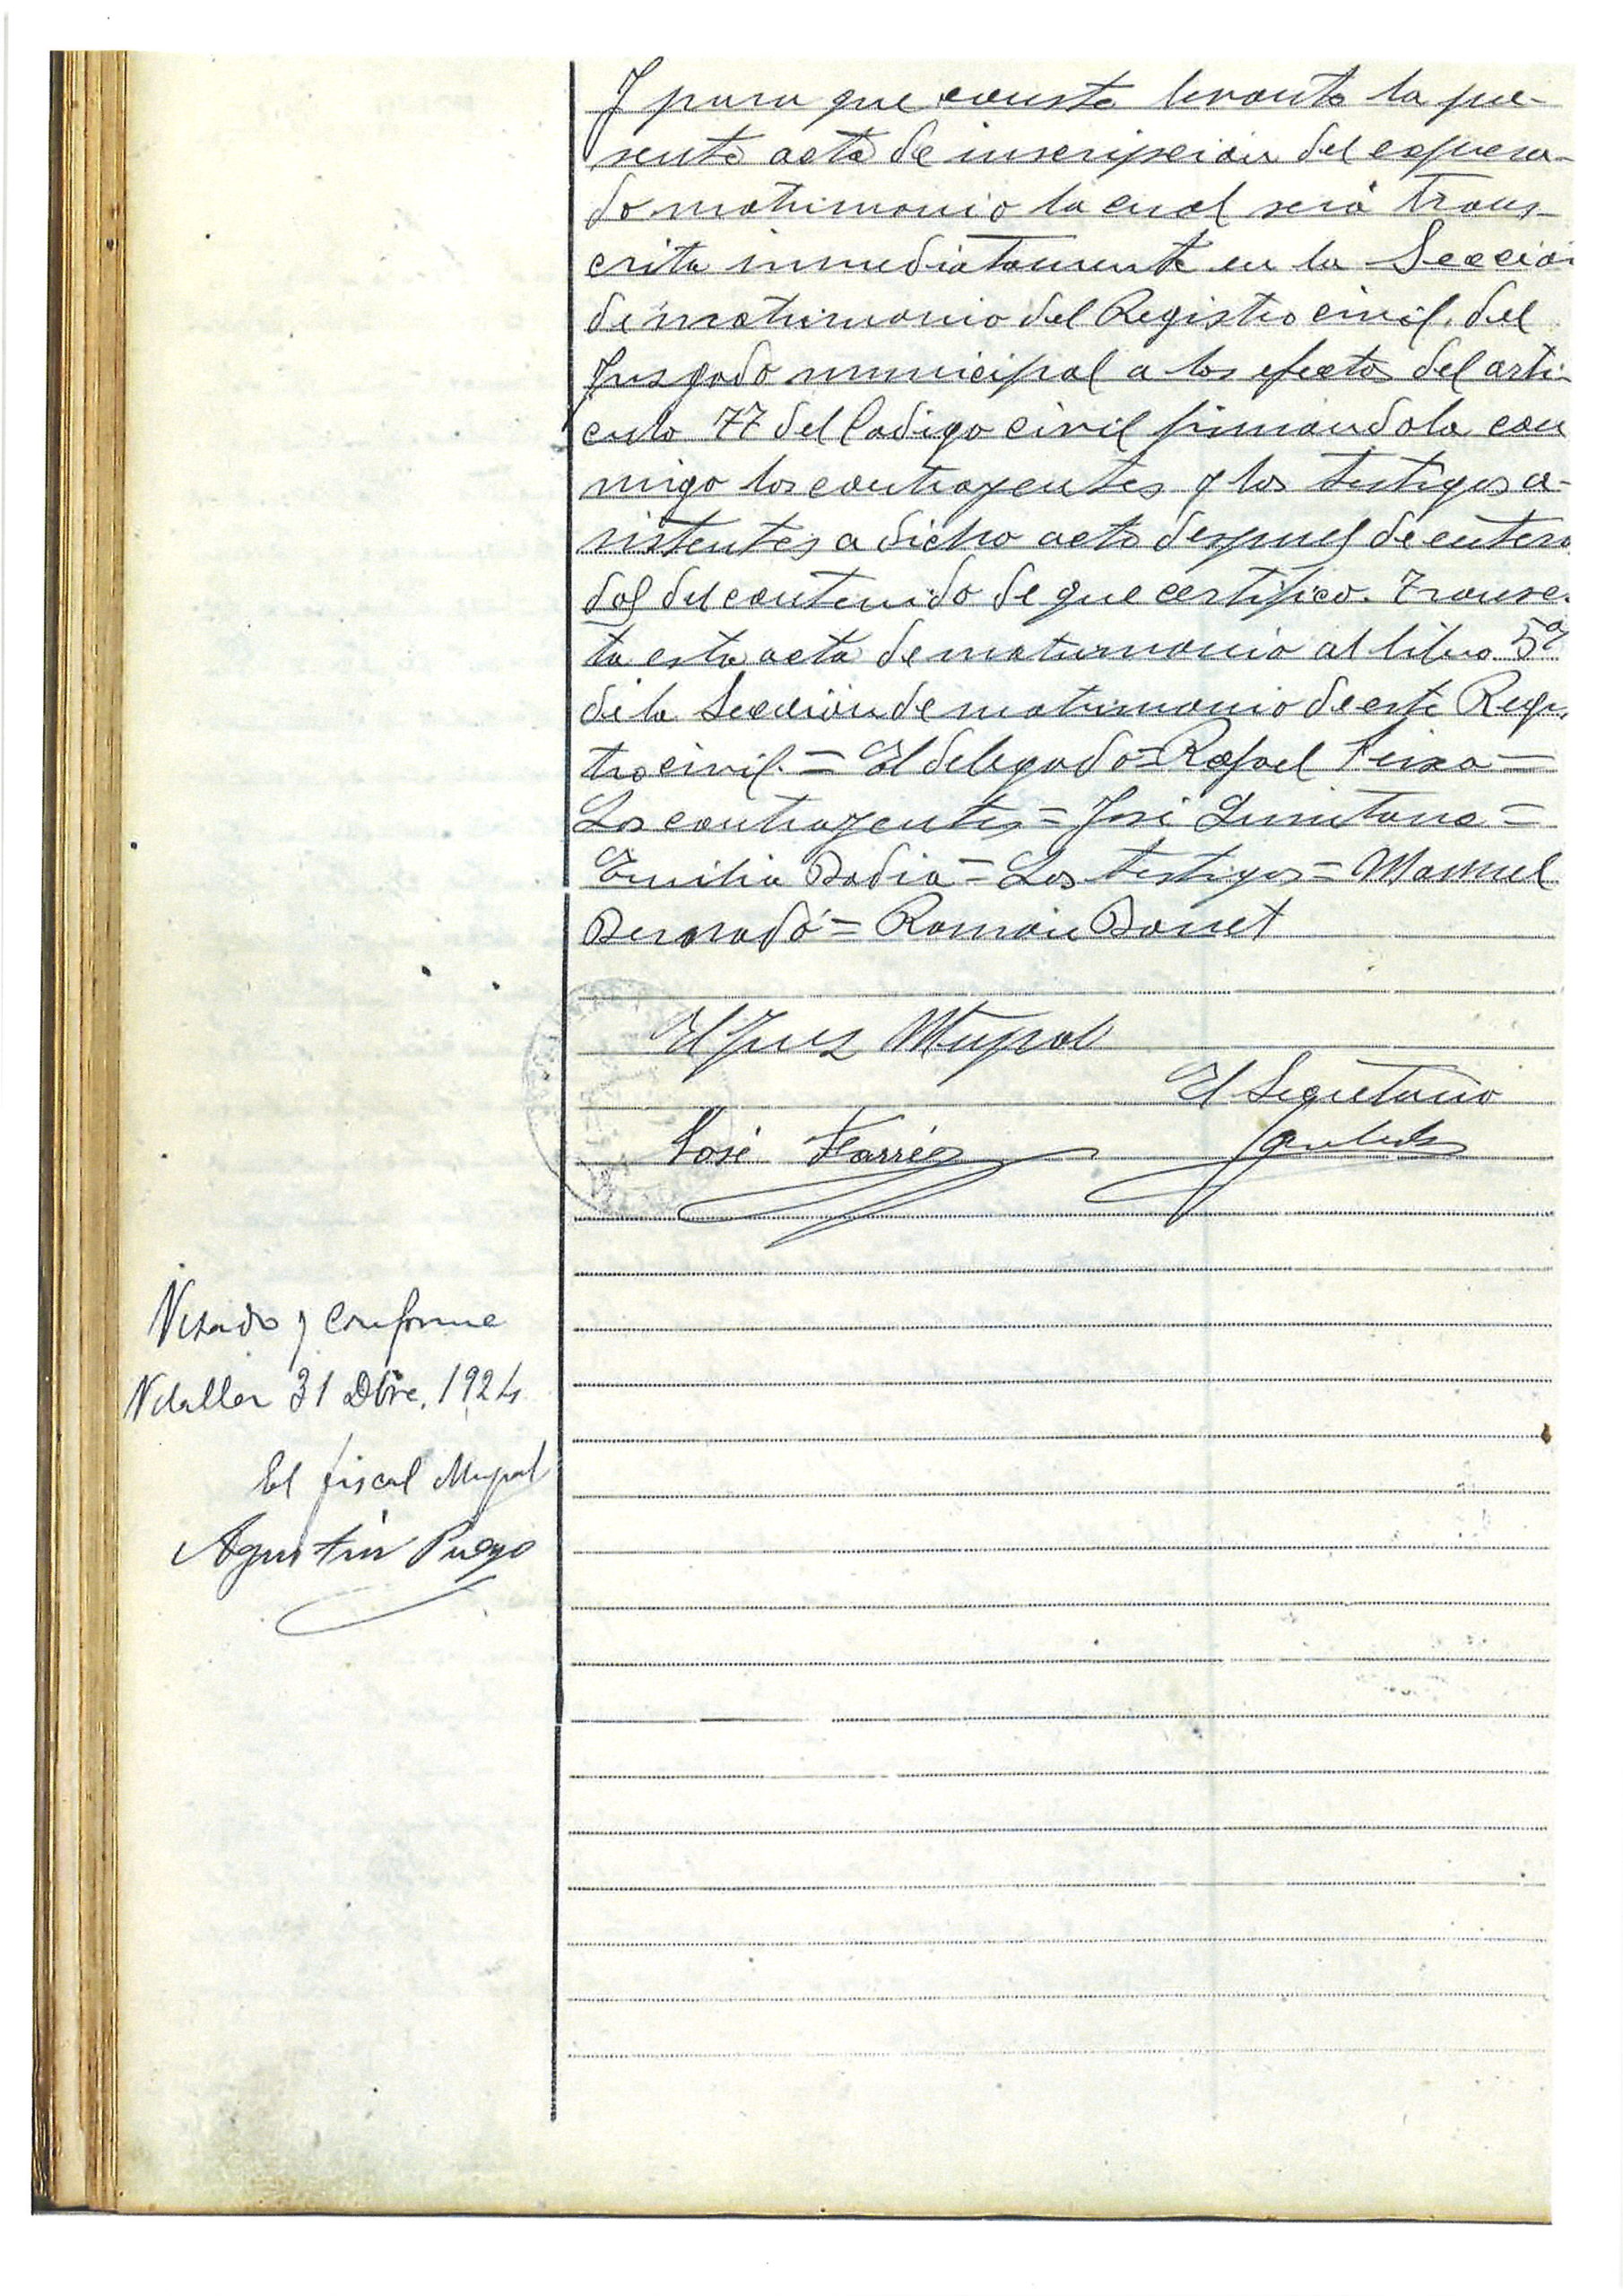 Y para que conste levanto la pre-
sente acta de inscripcion del expresa-
do matrimonio la cual será trans-
crita inmediatamente en la Seccion
de matrimonio del Registro civil del
Juzgado municipal a los efectos del arti-
culo 77 del Codigo civil firmandola con
migo los contrayentes y los testigos a-
sistentes a dicho acto despues de entera
dos del contenido de que certifico. Transc.
ta esta acta de matrimonio al libro 5º
de la Sección de matrimonio de este Regis.
tro civil. = El delegado = Rafael Feixa =
Los contrayentes = José Quintana =
Emilia Badia = Los testigos = Manuel
= Ramón Bonet
El Juez Mupal
El Secretario
José Farrés
Visado y conforme
31 Dbre. 1924
El fiscal Mupal
Agustin Pueyo